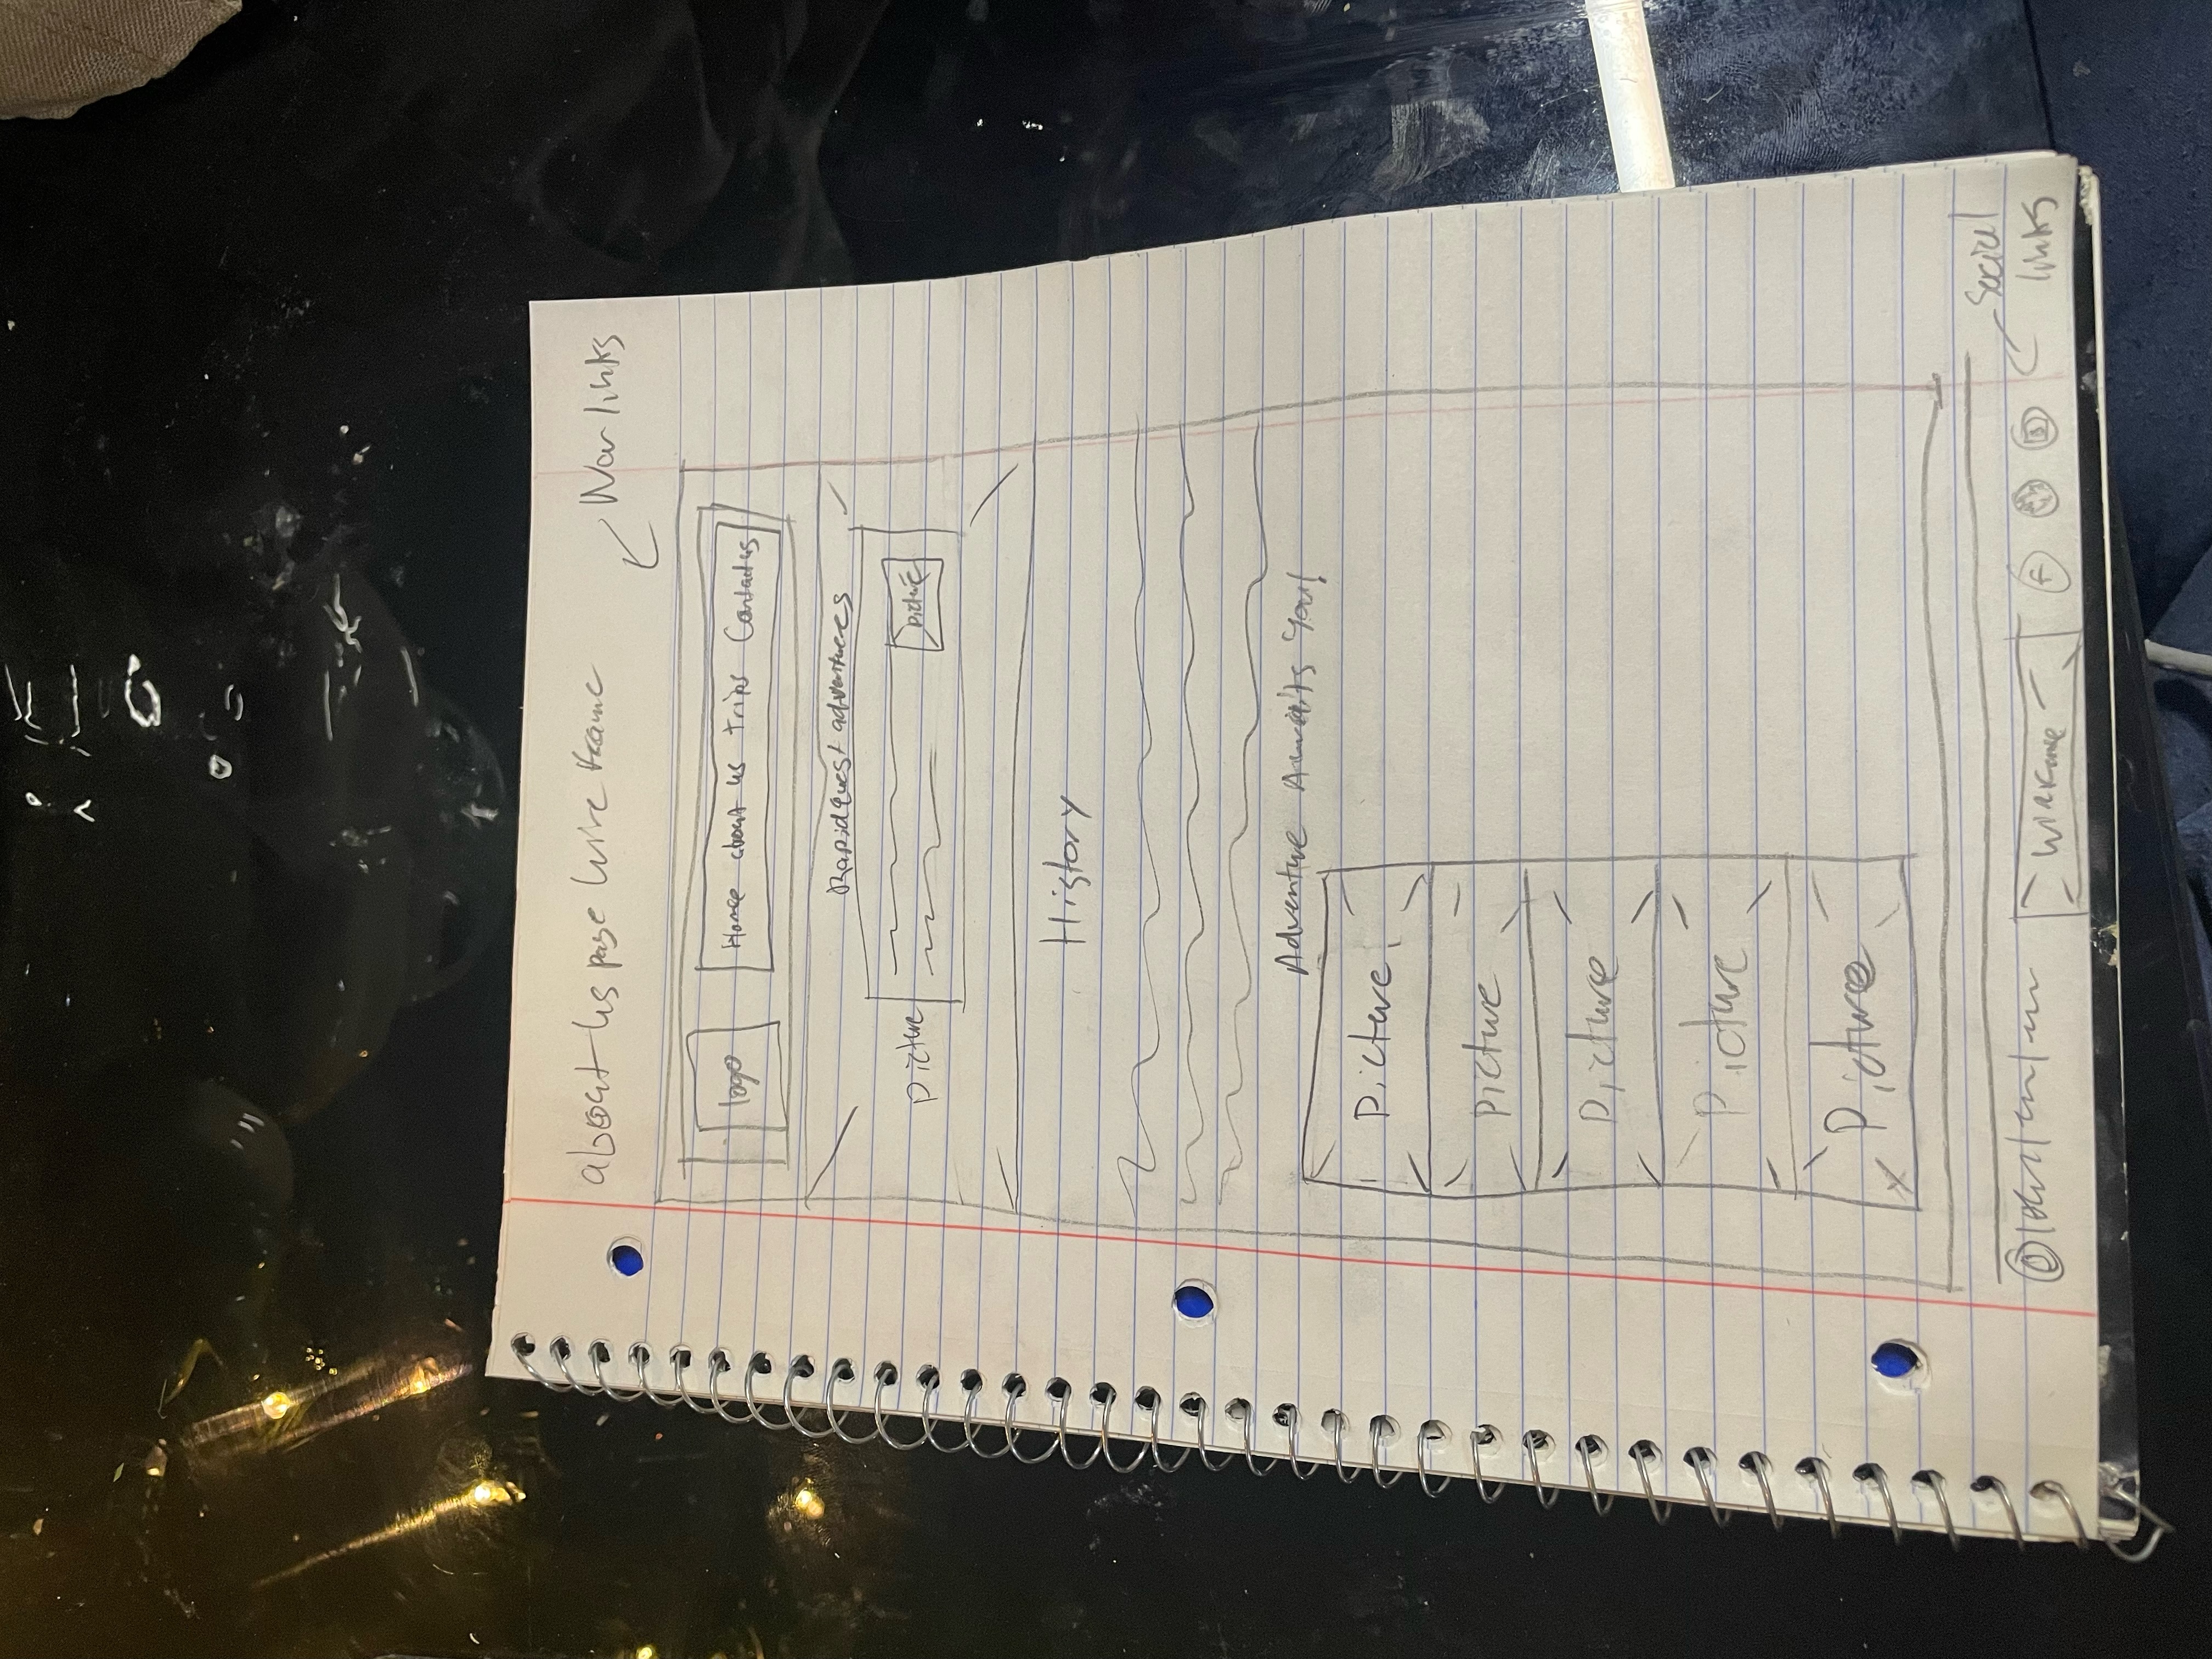 about us page wire frame
Nav links
logo
Home about us trips Contact us
Rapid Quest adventures
Picture
picture
History
Adventure Awaits You!
Picture
picture
Picture
Picture
Picture
social
links